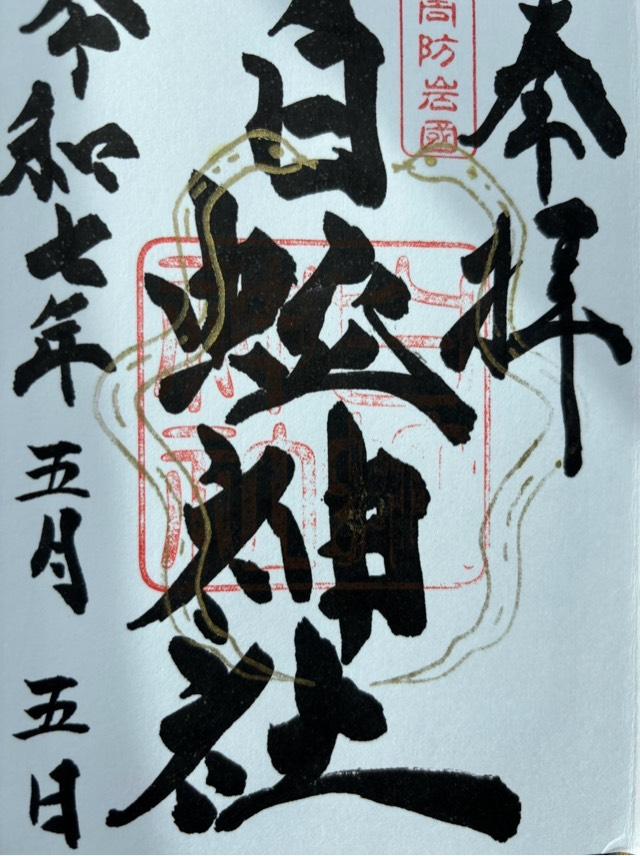 奉拝
周防岩國
白蛇神社
令和七年 五月 五日